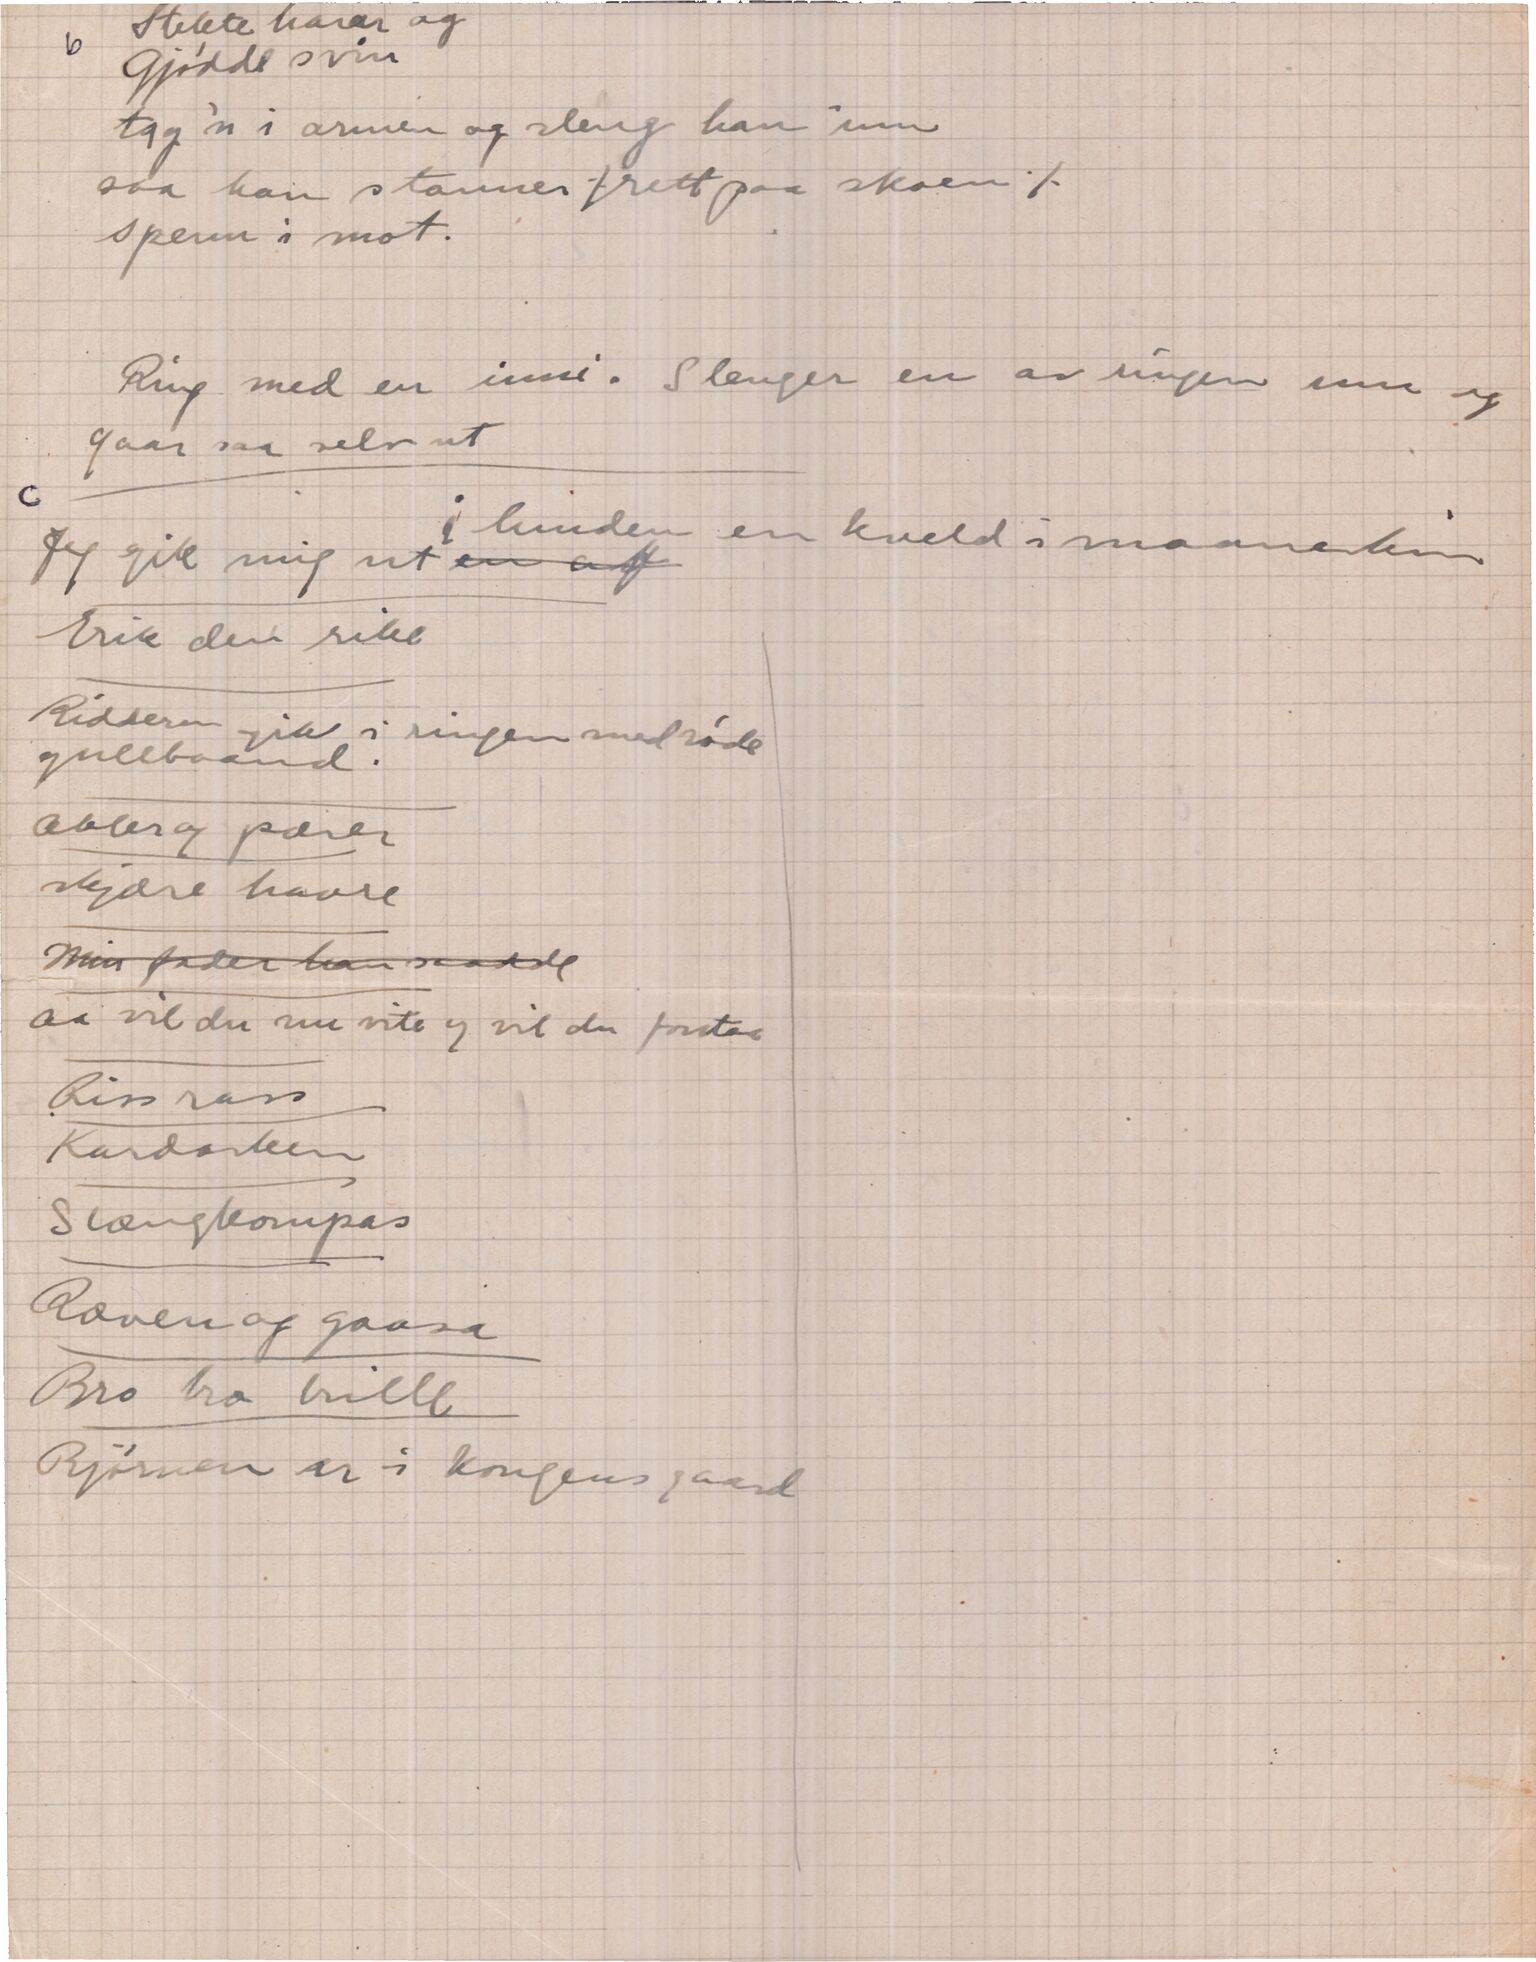 b Stekte harer og
Gjødde svin
tag'n i armen og sleng han inn
saa han stanner frett paa skoen :/:
sperm i mot.
Ring med en inni. Slenger en av ringen inn og
gaar saa selv ut
c
Jeg gik mig ut en aft i lunden en kveld i maaneskin
Erik den rike
Ridderen gik i ringen med røde
gullbaand.
æbler og pærer
skjære havre
Min fader han saadde
aa vil du nu vite og vil du forstaa
Riss rass
Kardasken
Slængkompas
Ræven og gaasa
Bro bro brille
Bjørnen er i kongens gaard